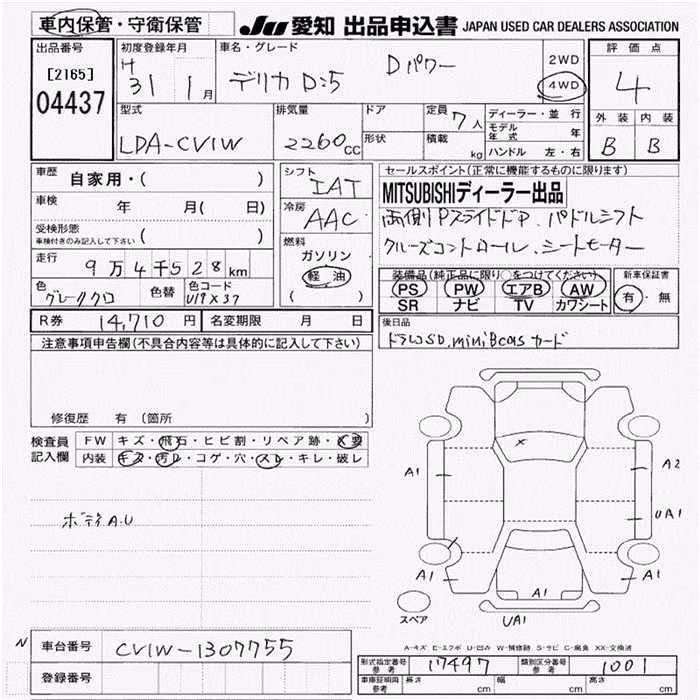 車内保管・守衛保管 JU 愛知 出品申込書 JAPAN USED CAR DEALERS ASSOCIATION
出品番号 初度登録年月 車名・グレード 評価点
[2165] H 31 1月 デリカ D:5 Dパワー 2WD 4WD 4
04437
型式 排気量 ドア 定員 7人 ディーラー・並行 外装 内装
LDA-CV1W 2260cc 形状 積載 kg モデル年式 年 B B
ハンドル 左・右
車歴 自家用・( ) シフト IAT セールスポイント(正常に機能するものに限ります)
車検 年 月( 日) 冷房 AAC MITSUBISHIディーラー出品
受検形態 車検付きのみ記入して下さい ( ) 燃料 両側Pスライドドア、パドルシフト
走行 9万4千528km ガソリン クルーズコントロール、シートヒーター
軽油
( )
色 グレー/クロ 色替 色コード U19X37
装備品(純正品に限り○をつけてください) 新車保証書
PS PW エアB AW 有・無
SR ナビ TV カワシート
R券 14,710円 名変期限 月 日 後日品
注意事項申告欄(不具合内容等は具体的に記入して下さい) ドラレコSD、miniBcasカード
修復歴 有 (箇所 )
検査員 FW キズ・飛石・ヒビ割・リペア跡・X要
記入欄 内装 キズ・汚レ・コゲ・穴・スレ・キレ・破レ
ボディA.U
A1 A2
UA1
A1 A1 A1
UA1
スペア
A-キズ E-エクボ U-凹み W-補修跡 S-サビ C-腐食 XX-交換済
N 車台番号 CV1W-1307755
登録番号
型式指定番号 参考 17497 類別区分番号 参考 1001
車庫証明用 参考 長さ cm 幅 cm 高さ cm